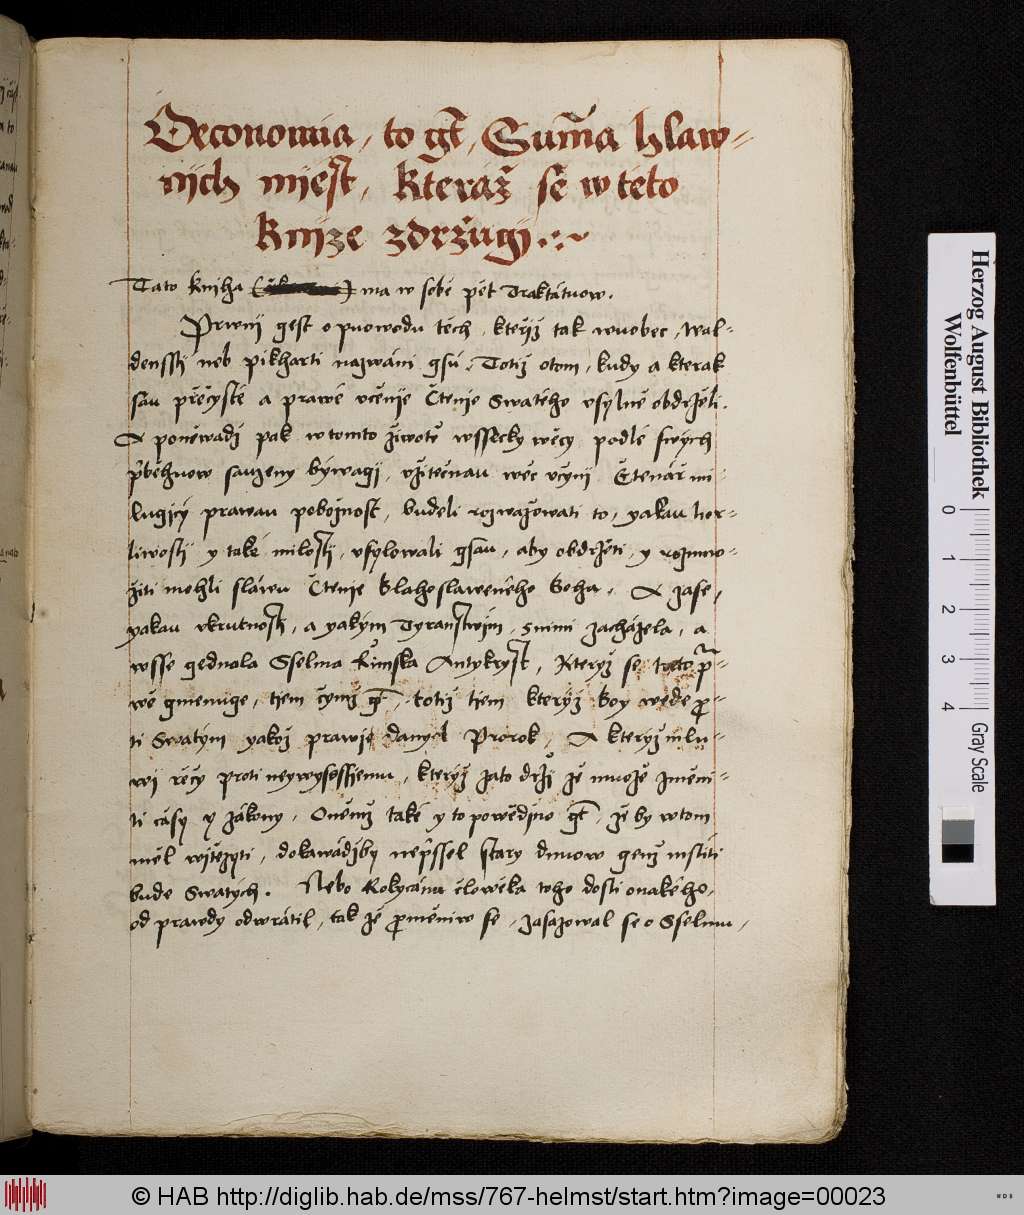 Oeconomia, to gt, Suma hlaw-
nijch mijest, kteraž se w teto
Knijze zdržugij
Tato kniha ma w sobě pět Traktátuow.
Prwnij gest o puowodu těch, kteřijž tak wuobec, Wal-
denssti neb Pikharti nazwáni gsú. Totiž otom, kudy a kterak
sau přečysté a prawé včenije Čtenie Swatého vsylně obdrželi.
A poněwadž pak w tomto žiwotě wssecky wěcy podlé swých
přběhuow sauzeny býwagi, vžitečnau wěc včynij Čtenář mi-
lugijcý prawau pobožnost, budeli rozwažowati to, yakau hor-
liwostij y také milostij, vsylowali gsau, aby obdržeti, y rozmno-
žiti mohli sláwu Čtenie Blahoslaweného Boha. A zase,
yakau vkrutnostij, a yakým Tyranstwijm, s nimi zacházela, a
wsse gednala Sselma Řimska Antykryst, Kteryž se tieto pr-
wé gmenuge, tiem čymž gt, totiž tiem kterýž Boy wede pro-
ti Swatým yakož prawije Danyel Prorok, A kterýž mlu-
wi řěčy proti neywyssossiemu, kterýž zato držij že muože změni-
ti časy y zákony, Oněmž také y to powědijno gt, že by w tom
měl wijtězyti, dokawádžby nepřssel stary dnuow genž mstíti
bude Swatých. Nebo Rokycána člowěka toho dosti onakého,
od prawdy odwrátil, tak že proměniw se, zasazowal se o Sselmu,
Herzog August Bibliothek
Wolfenbüttel
0 1 2 3 4
Gray Scale
© HAB http://diglib.hab.de/mss/767-helmst/start.htm?image=00023
WDB